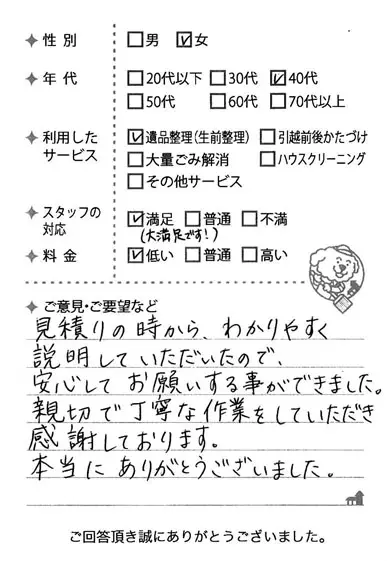 ✦ 性別 □男 ☑女
✦ 年代 □20代以下 □30代 ☑40代
□50代 □60代 □70代以上
✦ 利用したサービス ☑遺品整理(生前整理) □引越前後かたづけ
□大量ごみ解消 □ハウスクリーニング
□その他サービス
✦ スタッフの対応 ☑満足 □普通 □不満
(大満足です!)
✦ 料金 ☑低い □普通 □高い
✦ ご意見・ご要望など
見積りの時から、わかりやすく
説明していただいたので、
安心してお願いする事ができました。
親切で丁寧な作業をしていただき
感謝しております。
本当にありがとうございました。
ご回答頂き誠にありがとうございました。